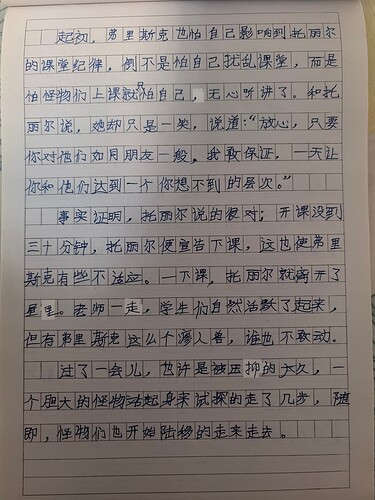 起初，弗里斯克也怕自己影响到托丽尔
的课堂纪律，倒不是怕自己扰乱课堂，而是
怕怪物们上课就怕自己，无心听讲了。和托
丽尔说，她却只是一笑，说道：“放心，只要
你对他们如同朋友一般，我敢保证，一天让
你和他们达到一个你想不到的层次。”
事实证明，托丽尔说的很对；开课没到
三十分钟，托丽尔便宣告下课，这也使弗里
斯克有些不适应。一下课，托丽尔就离开了
屋里。老师一走，学生们自然活跃了起来，
但有弗里斯克这么个凄人兽，谁也不敢动．
过了一会儿，也许是被压抑的太久，一
个胆大的怪物站起身来试探的走了几步，随
即，怪物们也开始陆移的走来走去。